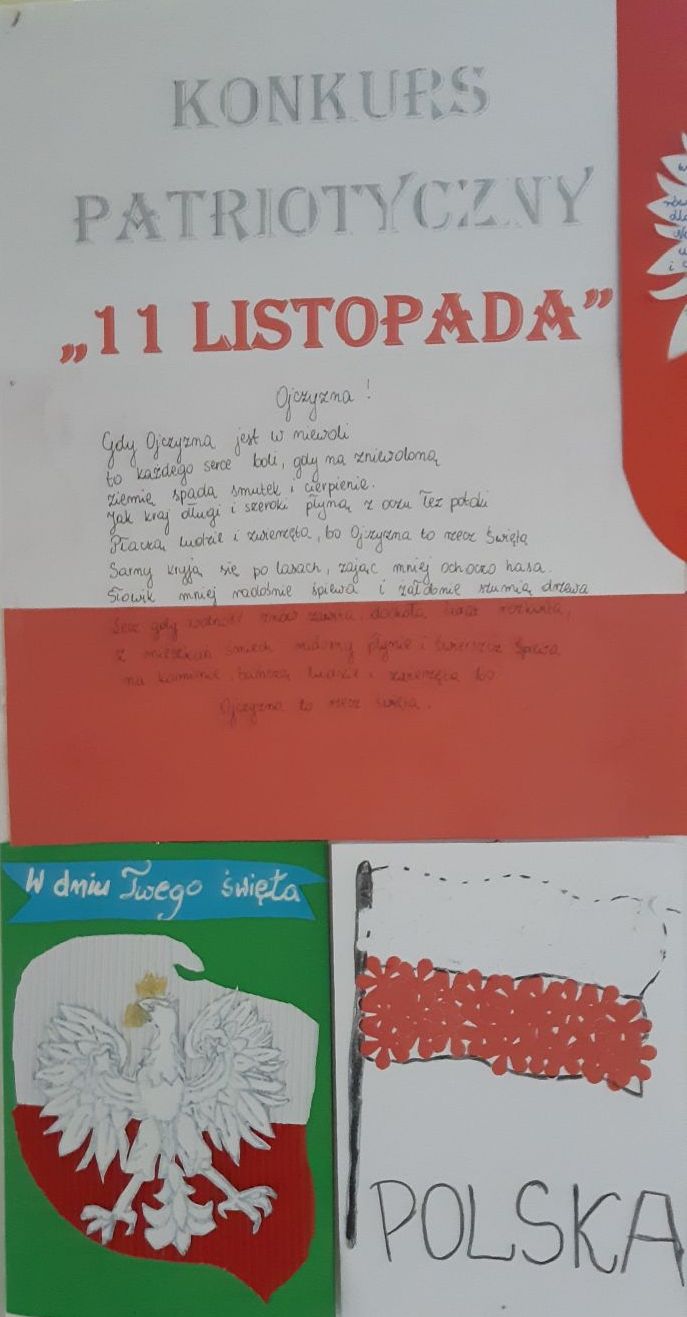 KONKURS
PATRIOTYCZNY
„11 LISTOPADA”
Ojczyzna !
Gdy Ojczyzna jest w niewoli
to każdego serce boli, gdy na zniewoloną
ziemię spada smutek i cierpienie.
Jak kraj długi i szeroki płyną z oczu łez potoki
Płaczą ludzie i zwierzęta, bo Ojczyzna to rzecz święta
Sarny kryją się po lasach, zając mniej ochoczo hasa.
Słowik mniej radośnie śpiewa i żałobnie szumią drzewa
Lecz gdy wolność znów zawita, dookoła
z mieszkań śmiech radosny płynie i świerszcz śpiewa
na kominie, tańczą ludzie i zwierzęta bo
Ojczyzna to rzecz święta.
W dniu Twego święta
POLSKA